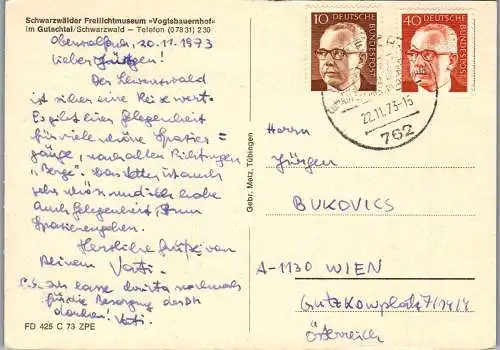 Schwarzwälder Freilichtmuseum »Vogtsbauernhof«
im Gutachtal/Schwarzwald – Telefon (07831) 230
Oberwolfach, 20.11.1973
Lieber Jürgen!
Der Schwarzwald
ist sicher eine Reise wert.
Es gibt hier Gelegenheit
für viele schöne Spazier=
gänge, nach allen Richtungen
"Berge". Das Wetter ist auch
sehr schön und ich habe
auch Gelegenheit, zum
Spazierengehen.
Herzliche Grüße von
Deinem Vati.
P.S. Ich lasse nochmals
für die Besorgung
danken! Vati.
FD 425 C 73 ZPE
Gebr. Metz, Tübingen
10 DEUTSCHE BUNDESPOST
40 DEUTSCHE BUNDESPOST
22.11.73-15
762
Herrn
Jürgen
BUKOVICS
A-1130 WIEN
Gutzkowplatz 7/14/4
Österreich